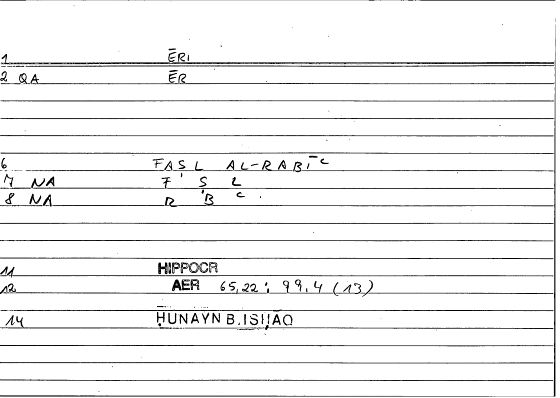 1 ĒRI
2 QA ĒR
6 FAṢL AL-RABĪʿ
7 NA F Ṣ L
8 NA R B ʿ
11 HIPPOCR
12 AER 65,22 ; 99,4 (13)
14 ḤUNAYN B. ISḤĀQ